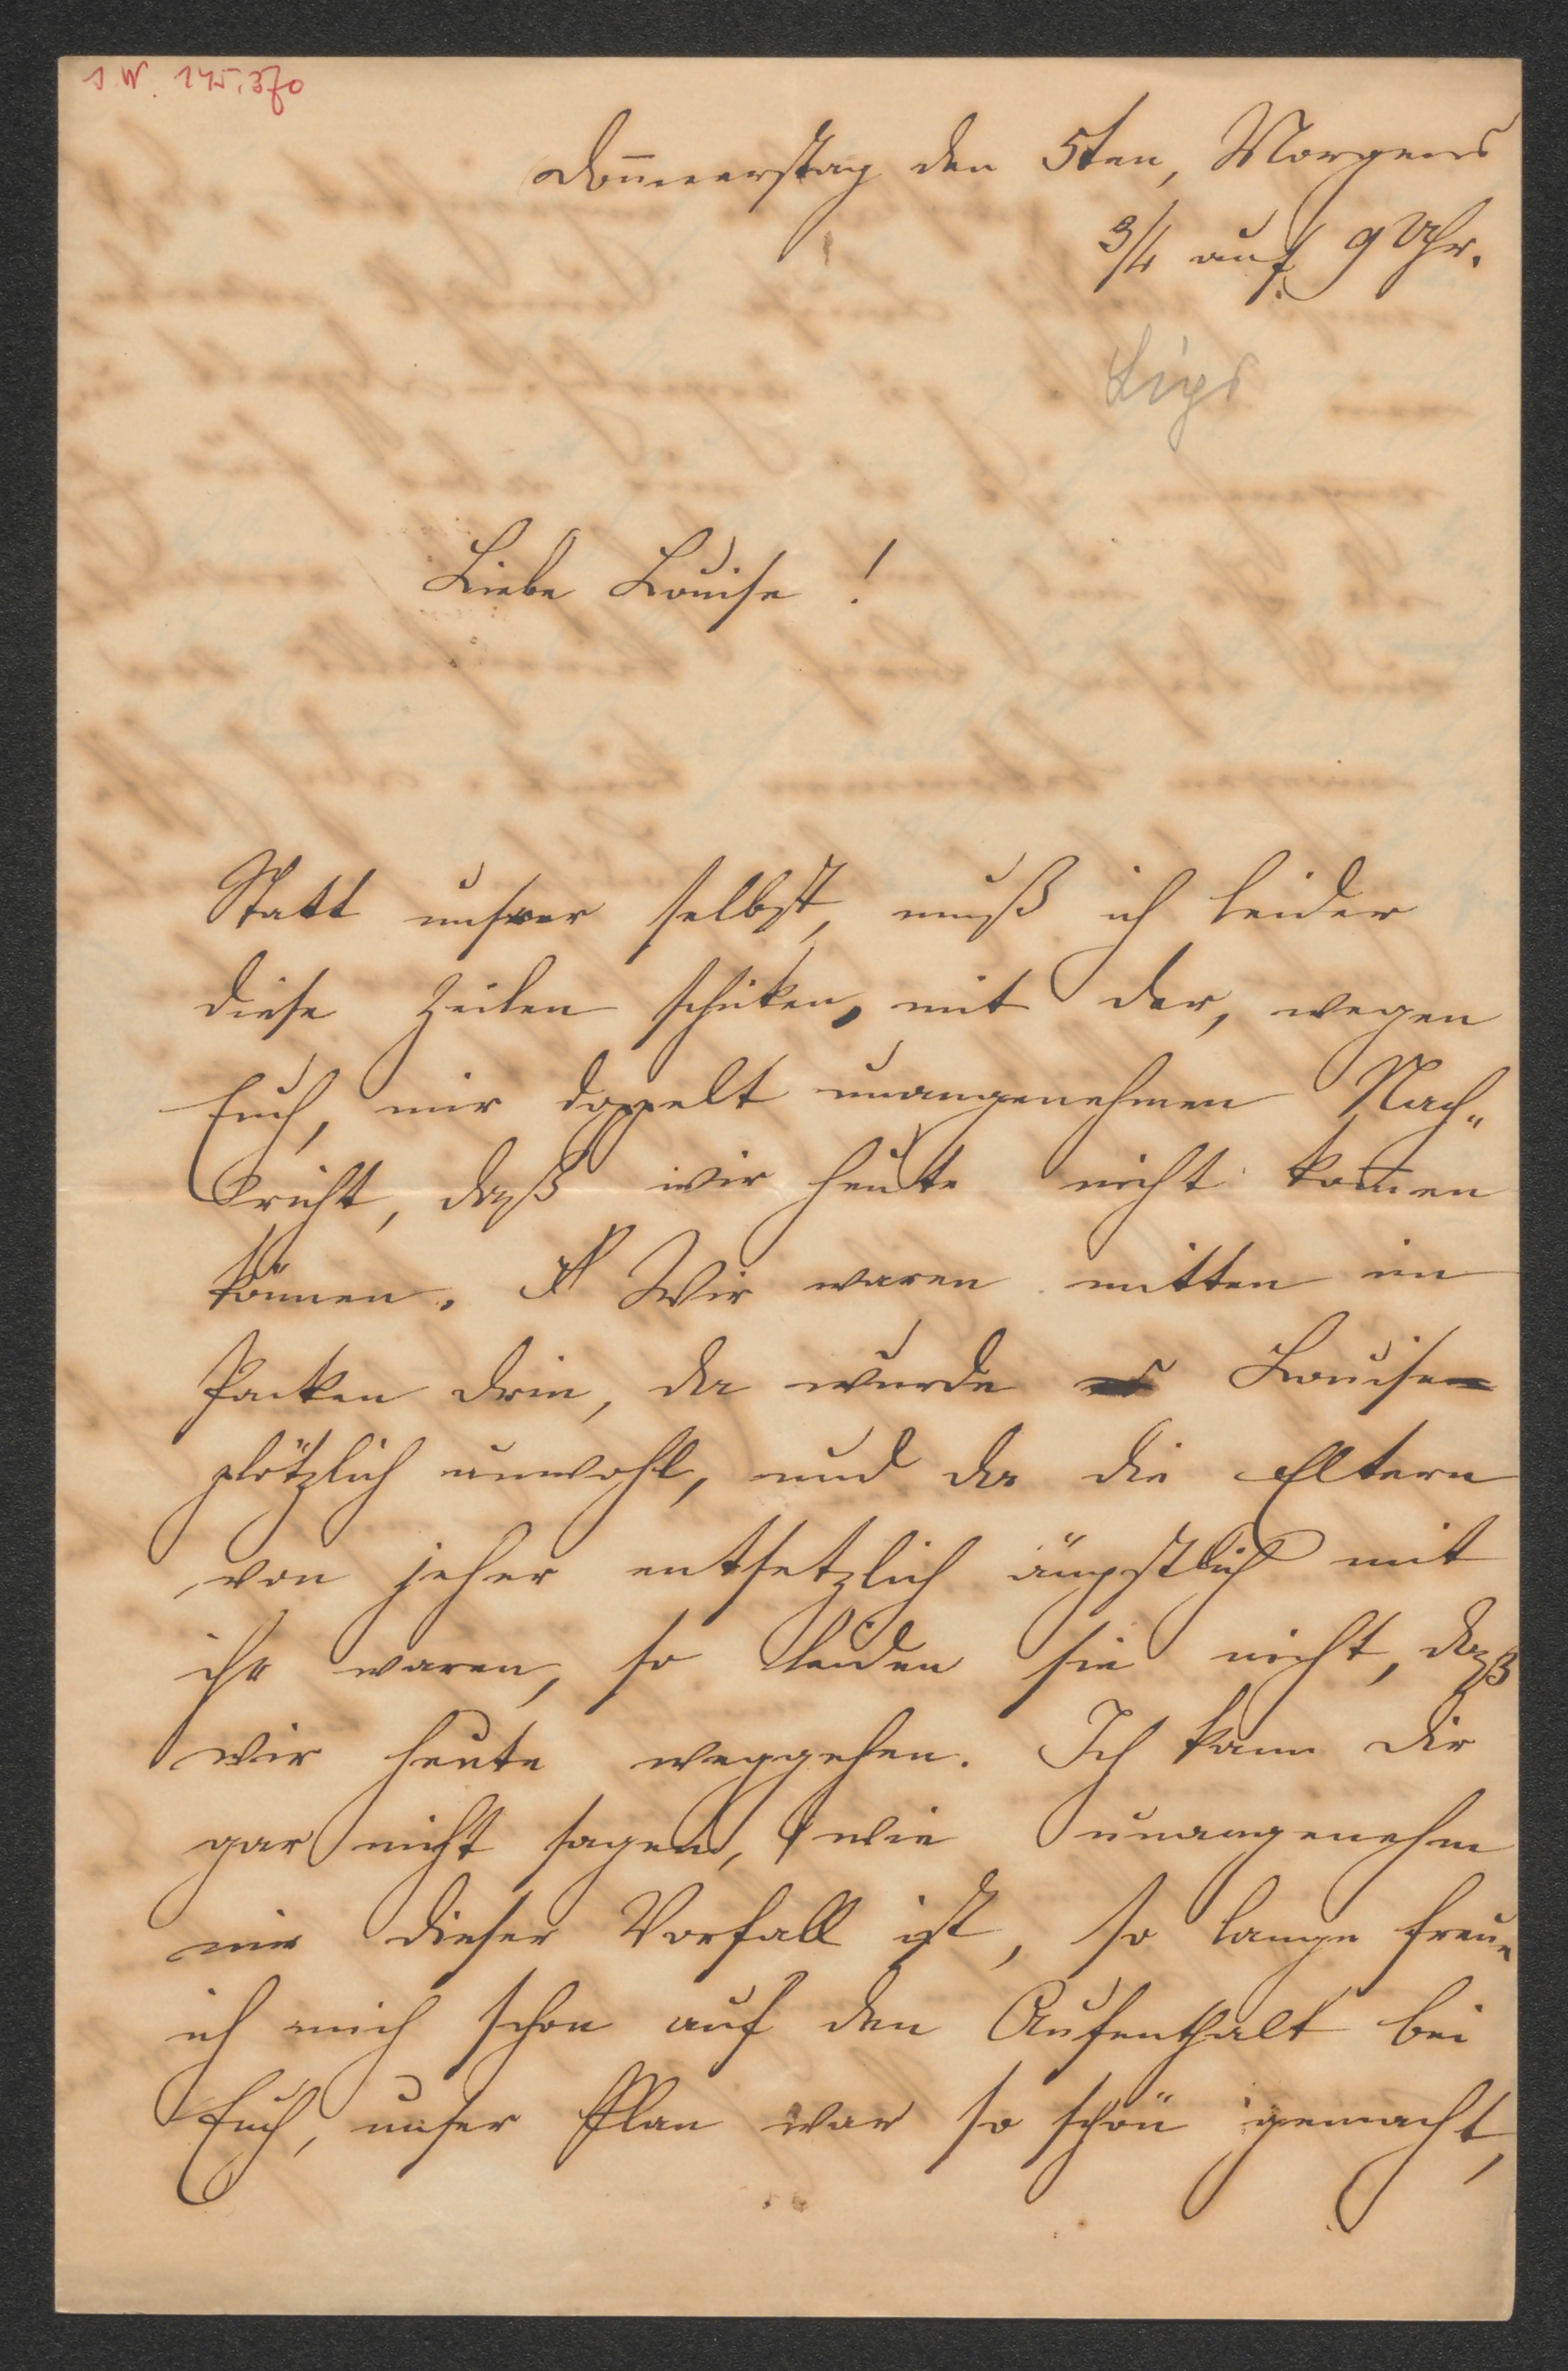 J. N. 145.370
Donnerstag den 5ten, Morgens
3/4 auf 9 Uhr.
Lips
Liebe Louise!
Statt unserer selbst, muß ich leider
diese Zeilen schicken, mit der, wegen
Euch, mir doppelt unangenehmen Nach„
richt, daß wir heute nicht kom̅en
können. Wir waren mitten im
Packen drin, da wurde Louise
plötzlich unwohl, und da die Eltern
von jeher entsetzlich ängstlich mit
ihr waren, so leiden sie nicht, daß
wir heute weggehen. Ich kann dir
gar nicht sagen, wie unangenehm
mir dieser Vorfall ist, so lange freue
ich mich schon auf den Aufenthalt bei
Euch, unser Plan war so schön gemacht,